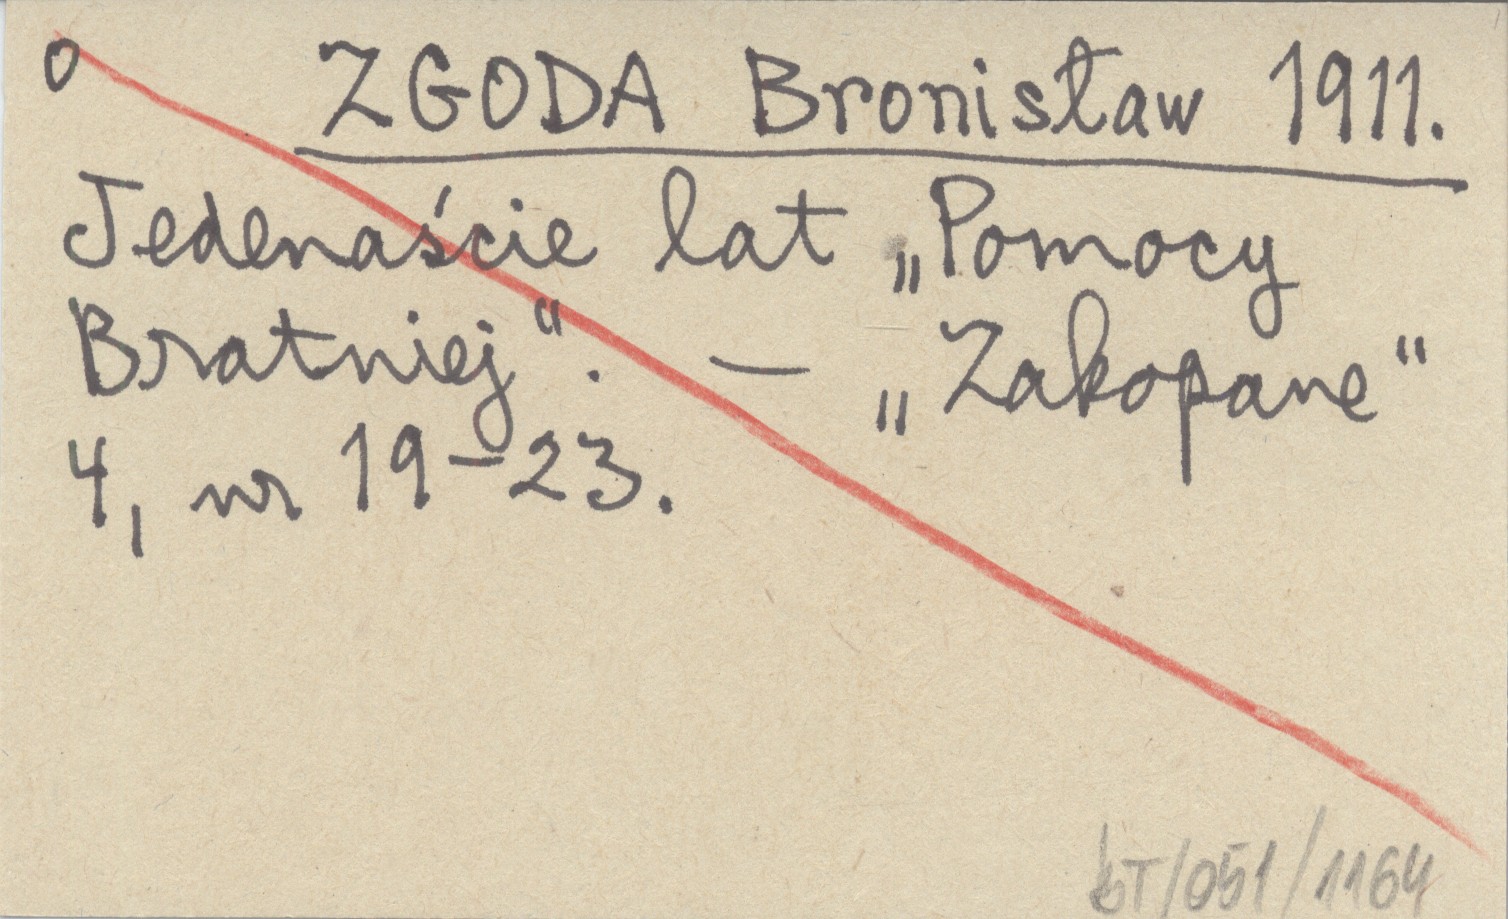 o ZGODA Bronisław 1911.
Jedenaście lat „Pomocy
Bratniej“. — „Zakopane“
4, nr 19-23.
ŁT/051/1164